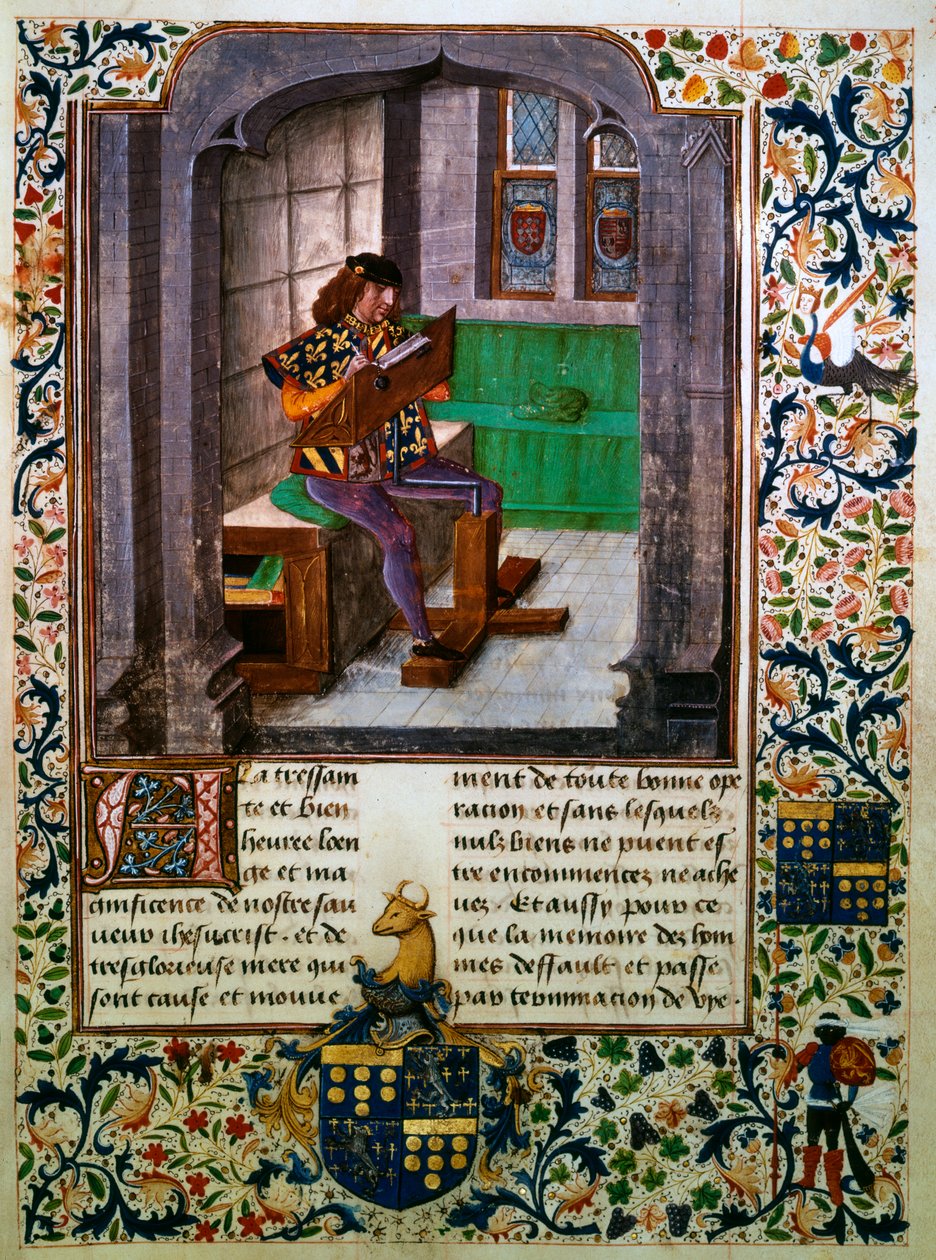 A La tressain
te et bien
heuree loen
ge et ma
gnificence de nostre sau
ueur ihesucrist . et de
tresglorieuse mere qui
sont cause et mouue
ment de toute bonne ope
racion et sans lesquelz
nulz biens ne puent es
tre encommencez ne ache
uez . Et aussy pour ce
que la memoire dez hom
mes deffault et passe
par terminacion de vye .